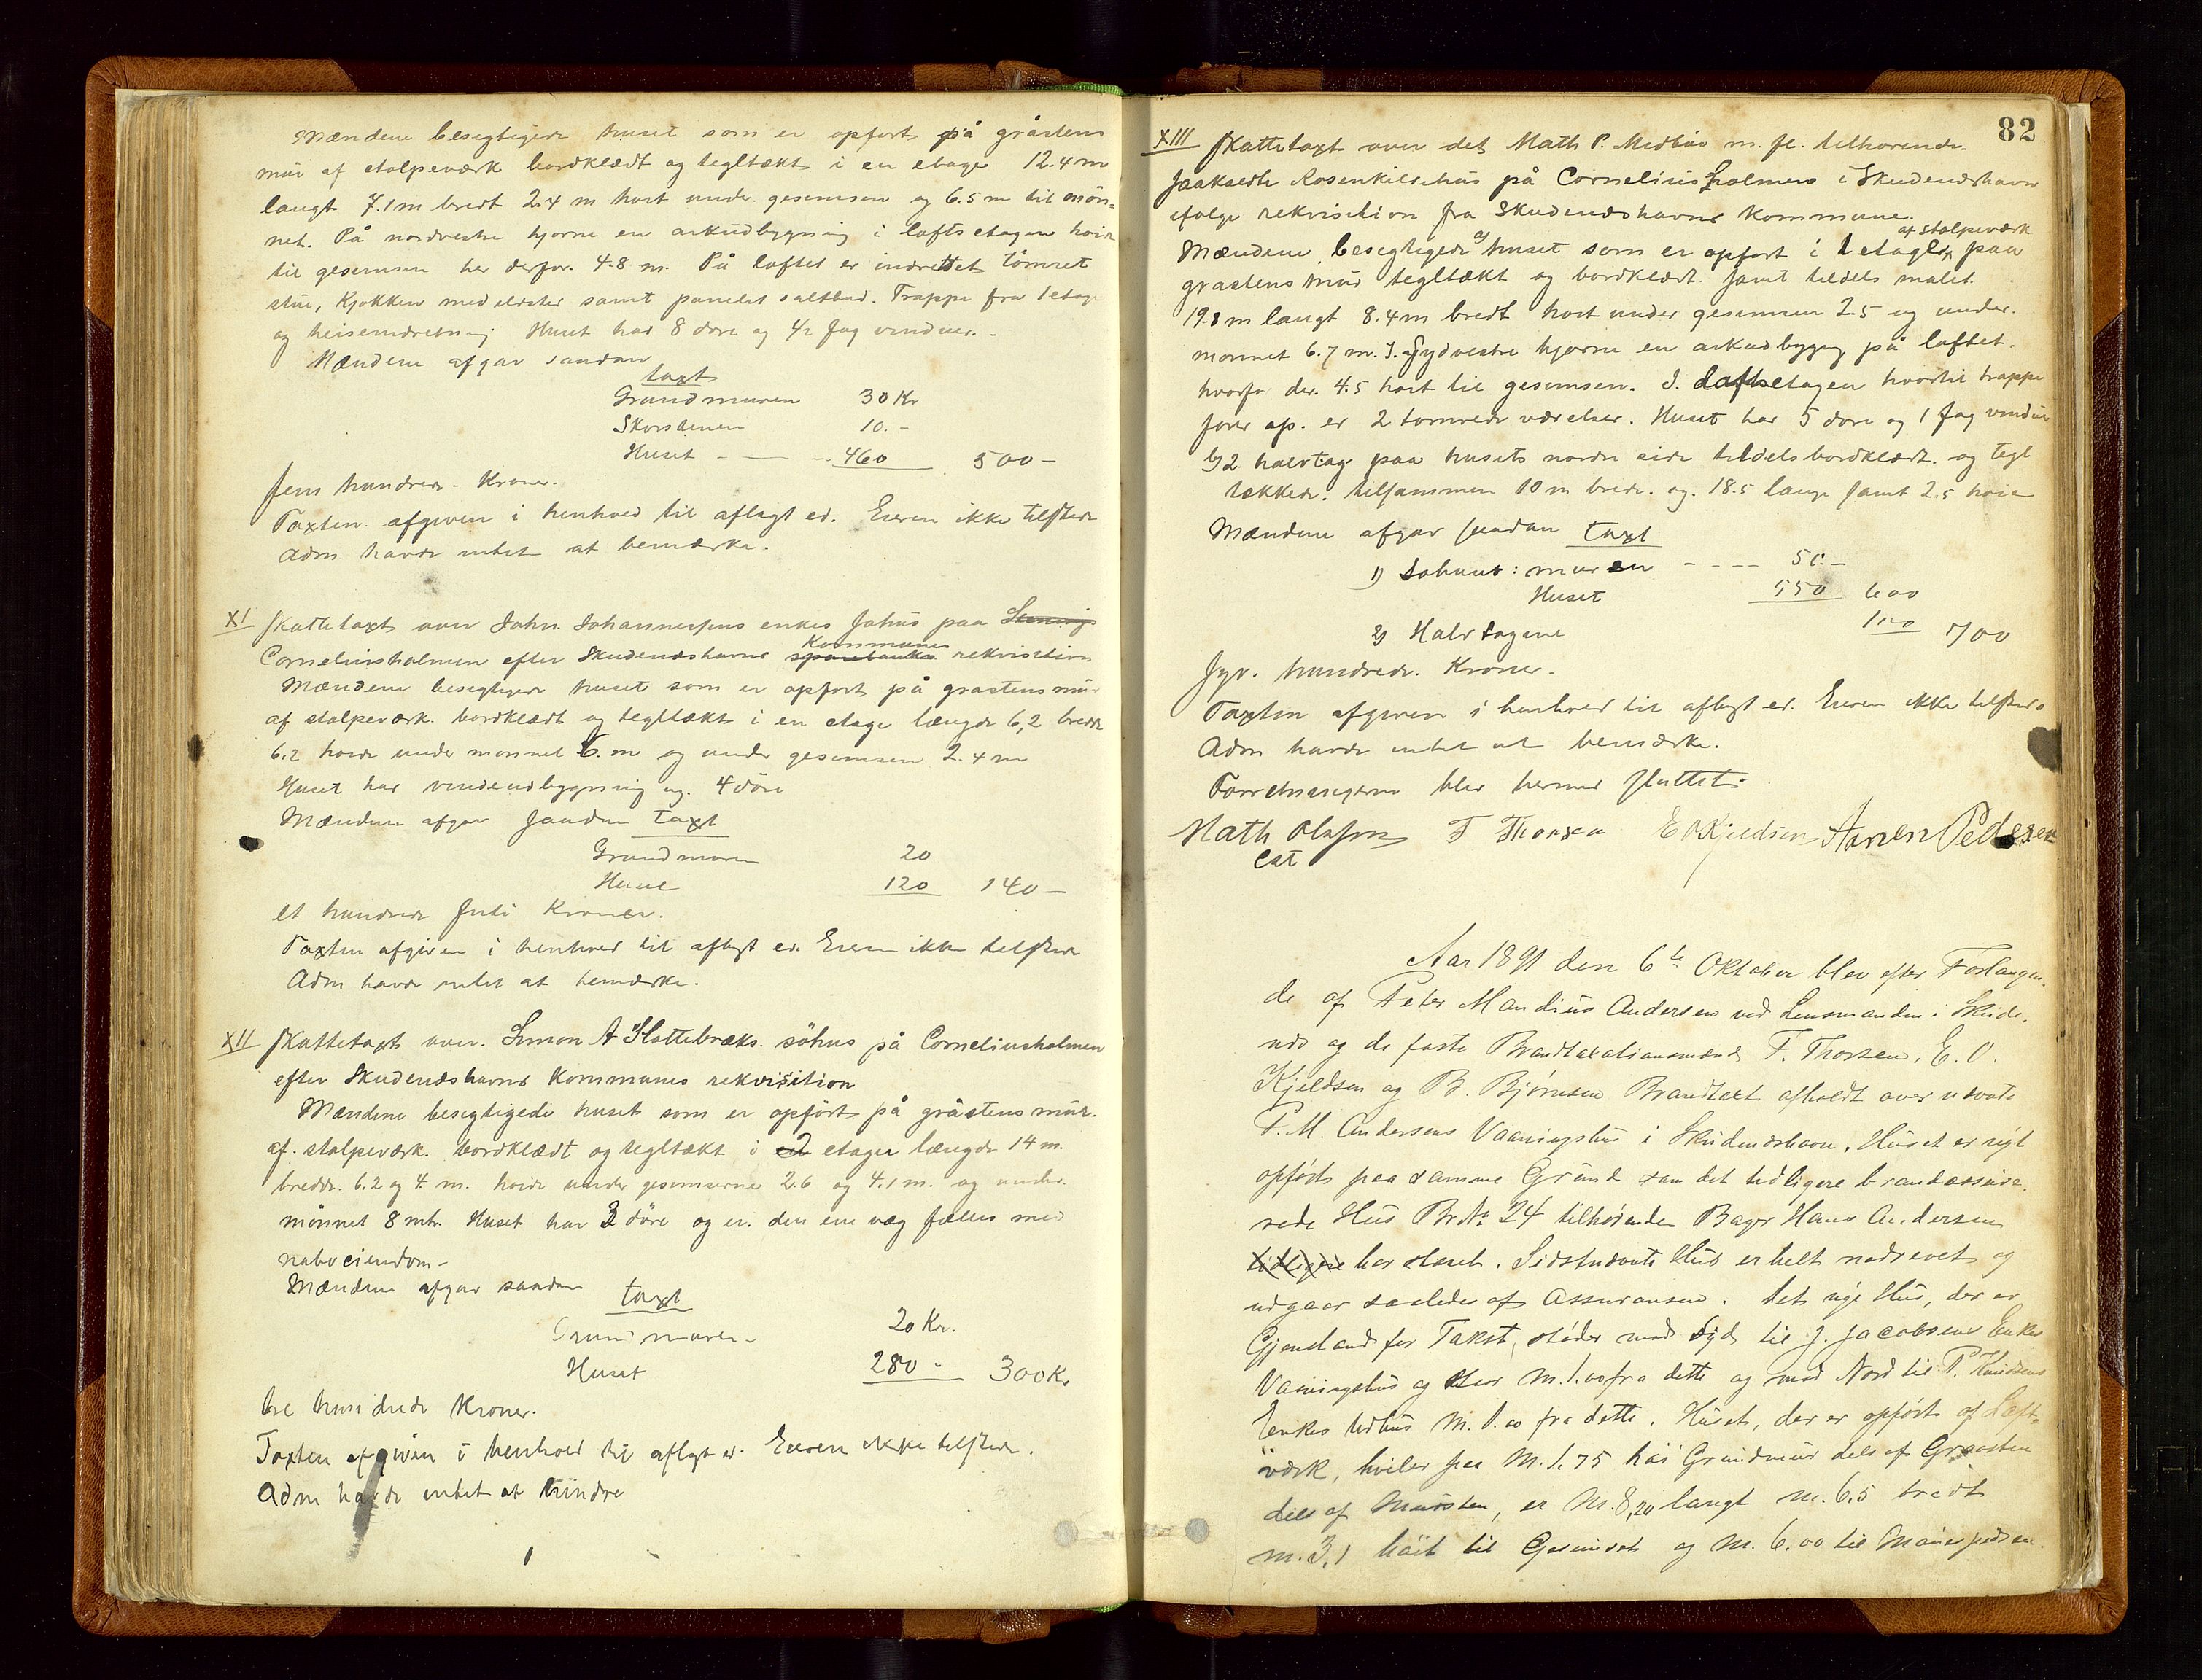 Mændene besegtigede huset som er opfort på gråstens
mur af stolpeværk bordklædt og tegltækt i en etage 12.4 m
langt 7.1 m bredt 2.4 m hoit under gesemsen og 6.5 m til mön=
net. På nordvestre hjorne en arkudbygning i loftsetagen hoide
til gesemsen her derfor 4.8 m. På loftet er indrettet tömret
stue, Kjokken med ildsted samt panelet saltbod. Trappe fra 1 etage
og heiseindretning Huset har 8 dore og 4/2 fag vinduer. -
Mændene afgav saadan
taxt
Grundmuren 30 Kr
Skorstenen 10. -
Huset - 460 500 -
fem hundrede Kroner.
Taxten afgiven i henhold til aflagt ed. Eieren ikke tilstede
Adm havde intet at bemærke.
XI Skattetaxt over John Johannesens enkes söhus paa
Corneliusholmen efter Skudeneshavns sparebanks Kommunes rekvisition
Mændene besegtigede huset som er opfort på grastensmur
af stolpeværk bordklædt og tegltækt i en etage længde 6,2 bredde
6.2 hoide under monnet 6. m og under gesemsen 2.4 m
Huset har vindeudbygning og 4 döre
Mændene afgav saadan taxt
Grundmuren 20
Huset 120 140 -
et hundrede firti Kroner.
Taxten afgiven i henhold til aflagt ed. Eieren ikke tilstede
Adm havde intet at bemærke.
XII Skattetaxt over Simon A Slottebræks söhus på Corneliusholmen
efter Skudeneshavns Kommunes rekvisition
Mændene besegtigede huset som er opfört på gråstens mur.
af stolpeværk bordklædt og tegltækt i 2 etager længde 14 m.
bredde 6.2 og 4 m. hoide under gesemserne 2.6 og 4.1 m. og under
mönnet 8 mtr. Huset har 3 döre og er den ene væg fælles med
naboeiendom -
Mændene afgav saadan
taxt
Grundmuren - 20 Kr.
Huset 280 - 300 Kr
tre hundrede Kroner.
Taxten afgiven i henhold til aflagt ed. Eieren ikke tilstede.
Adm havde intet at
82
XIII Skattetaxt over det Math P. Medbøe m. fl. tilhorende
saakaldte Rosenkildehus på Corneliusholmen i Skudeneshavn
ifolge rekvisition fra Skudeneshavns Kommune.
Mændene besegtigede huset som er opfort i 1 etage af stolpeværk paa
grastensmur tegltækt og bordklædt samt tildels malet.
19.8 m langt 8.4 m bredt hoit under gesemsen 2.5 og under
monnet 6.7 m. I Sydvestre hjorne en arkudbygg på loftet.
hvorfor der 4.5 hoit til gesemsen. I loftsetagen hvortil trappe
forer op. er 2 tomrede værelser. Huset har 5 dore og 1 fag vindue
2 halvtag paa husets nordre side tildels bordklædt og tegl
tækkede. tilsammen 10 m brede og 18.5 lange samt 2.5 hoie
Mændene afgav saadan taxt
1) Sohuset: muren - - - - 50 -
Huset 550 600
2) Halvtagene 100 700
syv hundrede Kroner.
Taxten afgiven i henhold til aflagt ed. Eieren ikke tilstede
Adm havde intet at bemærke.
Forretningerne blev hermed sluttet.
Math Olsen F Thorsen E O Kjeldsen Aanen Pedersen
cst
Aar 1891 den 6te Oktober blev efter Forlangen-
de af Peter Mandius Andersen ved Lensmanden i Skude-
nes og de faste Brandtaxationsmænd F. Thorsen, E. O.
Kjeldsen og B. Bjørnsen Brandtaxt afholdt over nævnte
P. M. Andersens Vaaningshus i Skudeneshavn. Huset er nyt
opført paa samme Grund som det tidligere brandassure-
rede Hus Br. No 24 tilhørende Bager Hans Andersen
tidligere har staaet. Sidstnævnte Hus er helt nedrevet og
udgaar saaledes af Assuransen. Det nye Hus, der er
Gjenstand for Takst, støder mod Syd til J. Jacobsens Enkes
Vaaningshus og staar M. 1.00 fra dette og mod Nord til P. Knudsens
Enkes Udhus M. 1.00 fra dette. Huset, der er opført af Lafte-
værk, hviler paa M. 1.75 høi Grundmur dels af Graasten
dels af Mursten, er M. 8,20 langt M. 6.5 bredt
M. 3,1 høit til Gesimset og M. 6.00 til